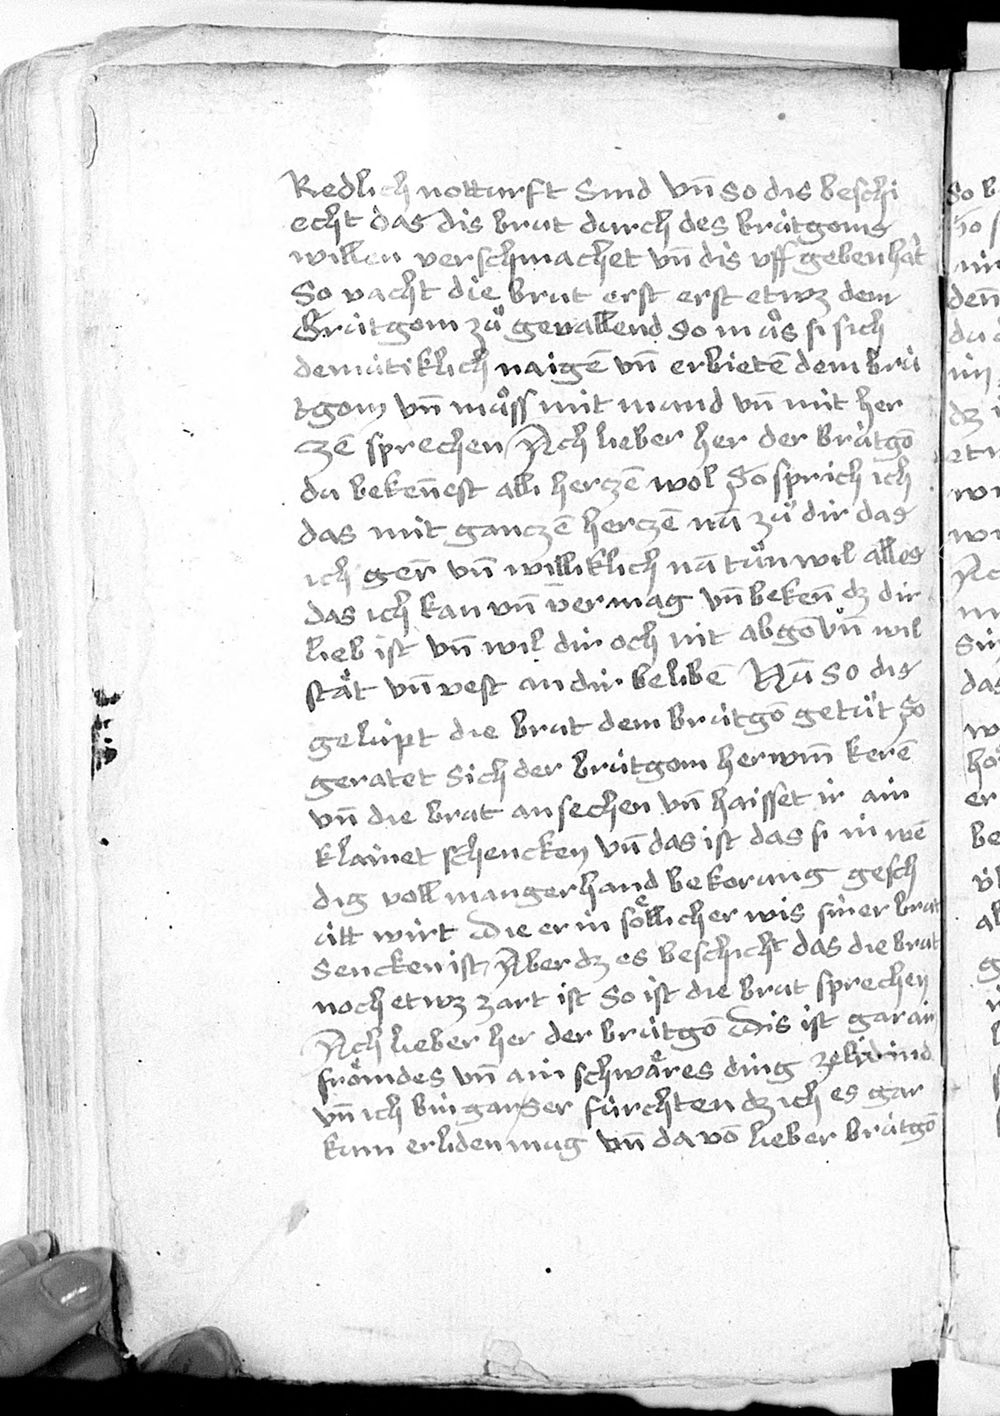 Redlich notturft Sind vn̄ So dis beschi
echt das dis brut durch des brútgoms
willen verschmachet vn̄ dis vff geben hat
So vacht die brut erst erst etwz dem
Brútgom zů gevallend So můs si sich
demútiklich naigē vn̄ erbietē dem brú
tgom vn̄ můss mit mund vn̄ mit her
czē sprechen Ach lieber her der brútgō
du beken̄est alli herczē wol So sprich ich
das mit ganczē herczē nū zů dir das
ich gern̄ vn̄ williklich nū tůn wil alles
das ich kan vn̄ vermag vn̄ beken̄ dz dir
lieb ist vn̄ wil dir och nit abgō vn̄ wil
stät vn̄ vest an dir belibē Nū So dis
gelúpt die brut dem brútgō getůt So
geratet Sich der brútgom herwm̄ kerē
vn̄ die brut ansechen vn̄ haisset ir ain
klainet schencken vn̄ das ist das si in wē
dig voll mangerhand bekorung gesch
útt wirt Die er in söllicher wis siner brut
Sencken ist Aber dz es beschicht das die brut
noch etwz zart ist So ist die brut sprechen
Ach lieber her der brútgō Dis ist gar ain
frömdes vn̄ ain schwäres ding ze lidind
vn̄ ich bin gar Ser fúrchten dz ich es gar
kum erliden mug vn̄ da vō lieber brútgō